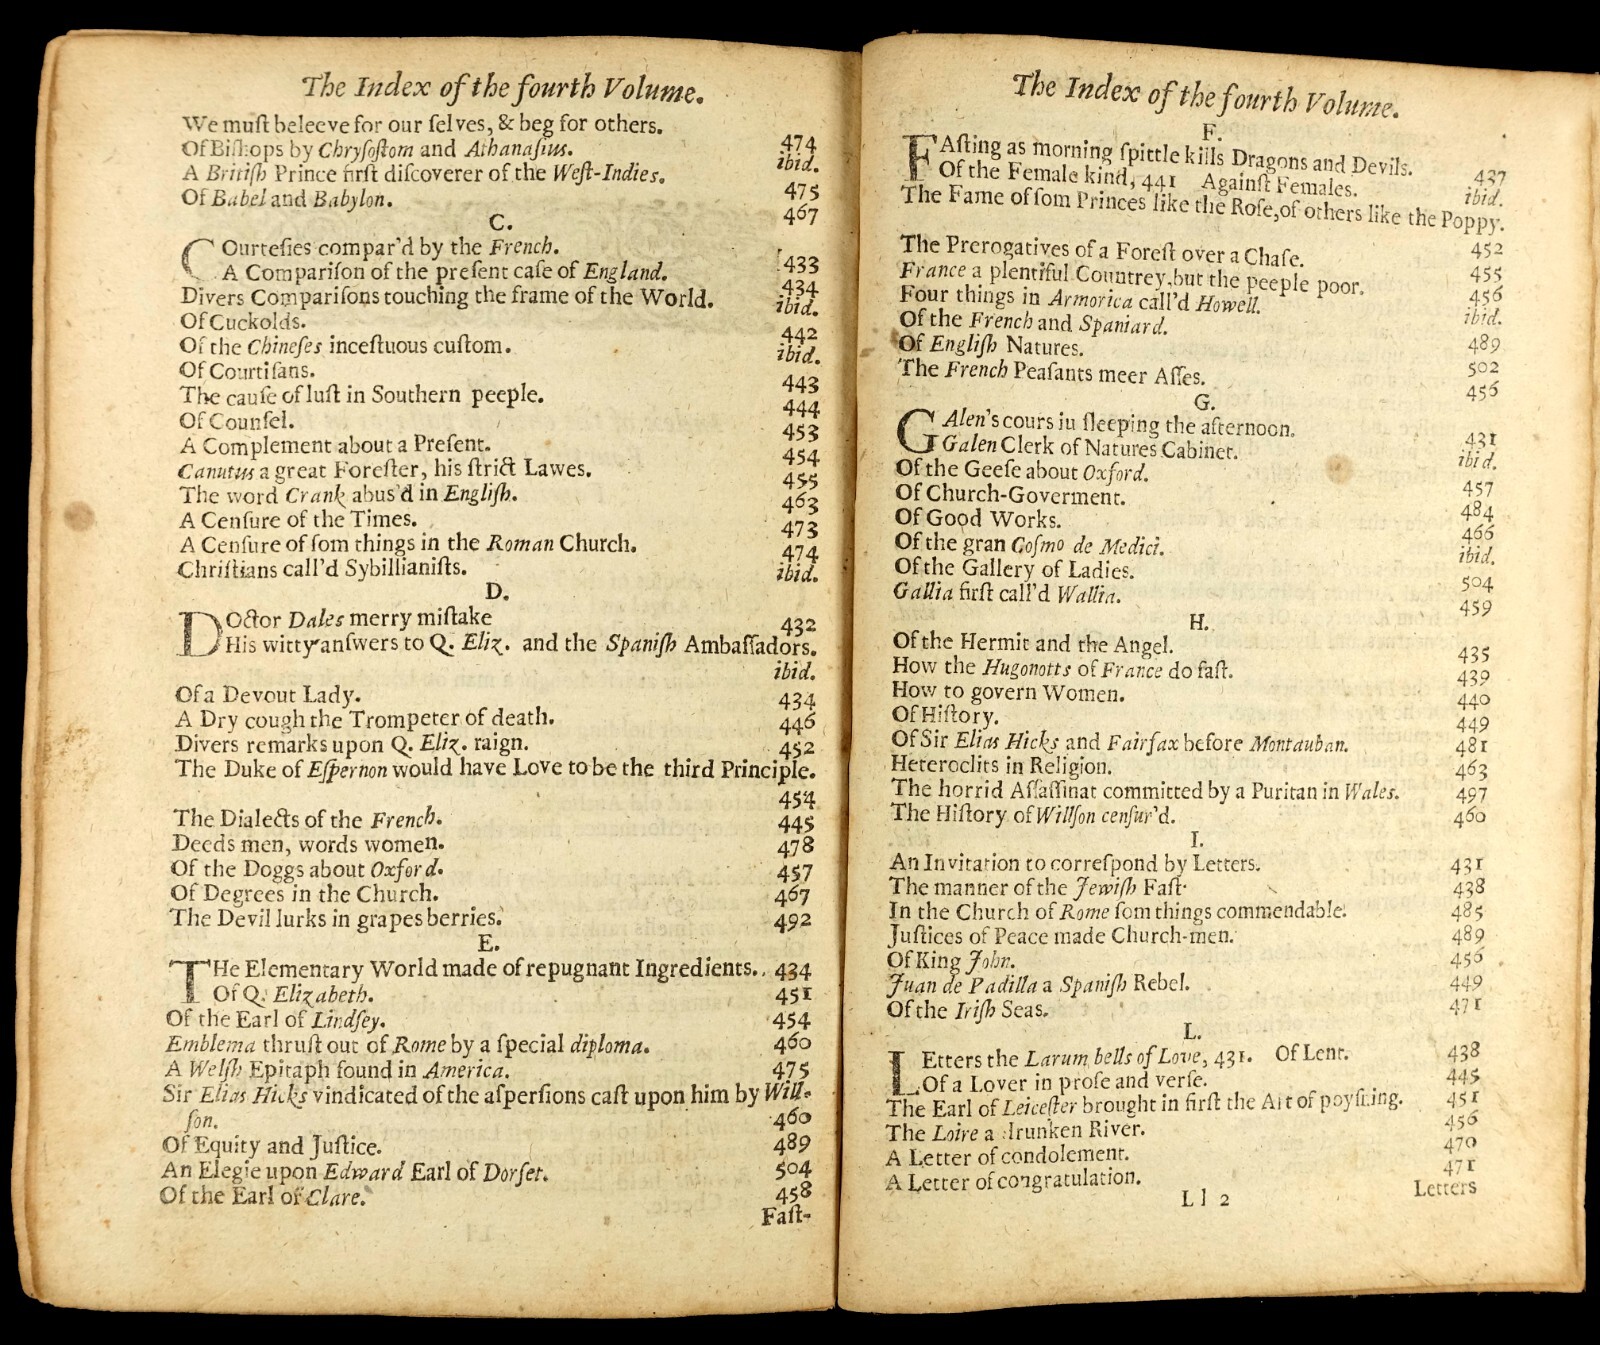 The Index of the fourth Volume.
We muſt beleeve for our ſelves, & beg for others. 474
Of Biſhops by Chryſoſtom and Athanaſius. ibid.
A Britiſh Prince firſt diſcoverer of the Weſt-Indies. 475
Of Babel and Babylon. 467
C.
COurteſies compar'd by the French. 433
A Compariſon of the preſent caſe of England. 434
Divers Compariſons touching the frame of the World. ibid.
Of Cuckolds. 442
Of the Chineſes inceſtuous cuſtom. ibid.
Of Courtiſans. 443
The cauſe of luſt in Southern peeple. 444
Of Counſel. 453
A Complement about a Preſent. 454
Canutus a great Foreſter, his ſtrict Lawes. 455
The word Crank abus'd in Engliſh. 463
A Cenſure of the Times. 473
A Cenſure of ſom things in the Roman Church. 474
Chriſtians call'd Sybillianiſts. ibid.
D.
DOctor Dales merry miſtake 432
His witty anſwers to Q. Eliz. and the Spaniſh Ambaſſadors.
ibid.
Of a Devout Lady. 434
A Dry cough the Trompeter of death. 446
Divers remarks upon Q. Eliz. raign. 452
The Duke of Eſpernon would have Love to be the third Principle.
454
The Dialects of the French. 445
Deeds men, words women. 478
Of the Doggs about Oxford. 457
Of Degrees in the Church. 467
The Devil lurks in grapes berries. 492
E.
THe Elementary World made of repugnant Ingredients. 434
Of Q. Elizabeth. 451
Of the Earl of Lindſey. 454
Emblema thruſt out of Rome by a ſpecial diploma. 460
A Welſh Epitaph found in America. 475
Sir Elias Hicks vindicated of the aſperſions caſt upon him by Will-
ſon. 460
Of Equity and Juſtice. 489
An Elegie upon Edward Earl of Dorſet. 504
Of the Earl of Clare. 458
Faſt-
The Index of the fourth Volume.
F.
FAſting as morning ſpittle kills Dragons and Devils. 437
Of the Female kind, 441 Againſt Females. ibid.
The Fame of ſom Princes like the Roſe, of others like the Poppy.
452
The Prerogatives of a Foreſt over a Chaſe. 455
France a plentiful Countrey, but the peeple poor. 456
Four things in Armorica call'd Howell. ibid.
Of the French and Spaniard. 489
Of Engliſh Natures. 502
The French Peaſants meer Aſſes. 456
G.
GAlen's cours iu ſleeping the afternoon. 431
Galen Clerk of Natures Cabinet. ibid.
Of the Geeſe about Oxford. 457
Of Church-Goverment. 484
Of Good Works. 466
Of the gran Coſmo de Medici. ibid.
Of the Gallery of Ladies. 504
Gallia firſt call'd Wallia. 459
H.
Of the Hermit and the Angel. 435
How the Hugonotts of France do faſt. 439
How to govern Women. 440
Of Hiſtory. 449
Of Sir Elias Hicks and Fairfax before Montauban. 481
Heteroclits in Religion. 463
The horrid Aſſaſſinat committed by a Puritan in Wales. 497
The Hiſtory of Willſon cenſur'd. 460
I.
An Invitation to correſpond by Letters. 431
The manner of the Jewiſh Faſt. 438
In the Church of Rome ſom things commendable. 485
Juſtices of Peace made Church-men. 489
Of King John. 456
Juan de Padilla a Spaniſh Rebel. 449
Of the Iriſh Seas. 471
L.
LEtters the Larum bells of Love, 431. Of Lent. 438
Of a Lover in proſe and verſe. 445
The Earl of Leiceſter brought in firſt the Art of poyſning. 451
The Loire a drunken River. 456
A Letter of condolement. 470
A Letter of congratulation. 471
L l 2 Letters